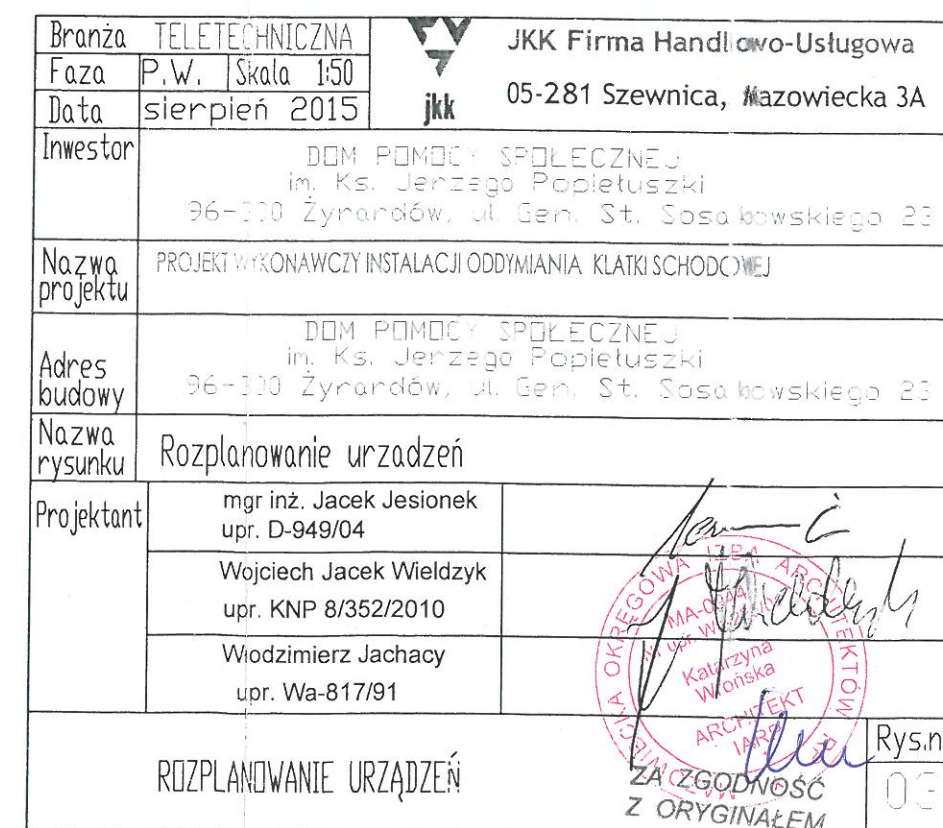 Branża TELETECHNICZNA
Faza P.W. Skala 1:50
Data sierpień 2015
jkk
JKK Firma Handlowo-Usługowa
05-281 Szewnica, Mazowiecka 3A
Inwestor
DOM POMOCY SPOŁECZNEJ
im. Ks. Jerzego Popiełuszki
96-300 Żyrardów, ul. Gen. St. Sosabowskiego 23
Nazwa projektu
PROJEKT WYKONAWCZY INSTALACJI ODDYMIANIA KLATKI SCHODOWEJ
Adres budowy
DOM POMOCY SPOŁECZNEJ
im. Ks. Jerzego Popiełuszki
96-300 Żyrardów, ul. Gen. St. Sosabowskiego 23
Nazwa rysunku
Rozplanowanie urzadzeń
Projektant
mgr inż. Jacek Jesionek
upr. D-949/04
Wojciech Jacek Wieldzyk
upr. KNP 8/352/2010
Włodzimierz Jachacy
upr. Wa-817/91
MAZOWIECKA OKRĘGOWA IZBA ARCHITEKTÓW
Katarzyna
Wrońska
ARCHITEKT
IARP
ROZPLANOWANIE URZĄDZEŃ
ZA ZGODNOŚĆ
Z ORYGINAŁEM
Rys.n
03